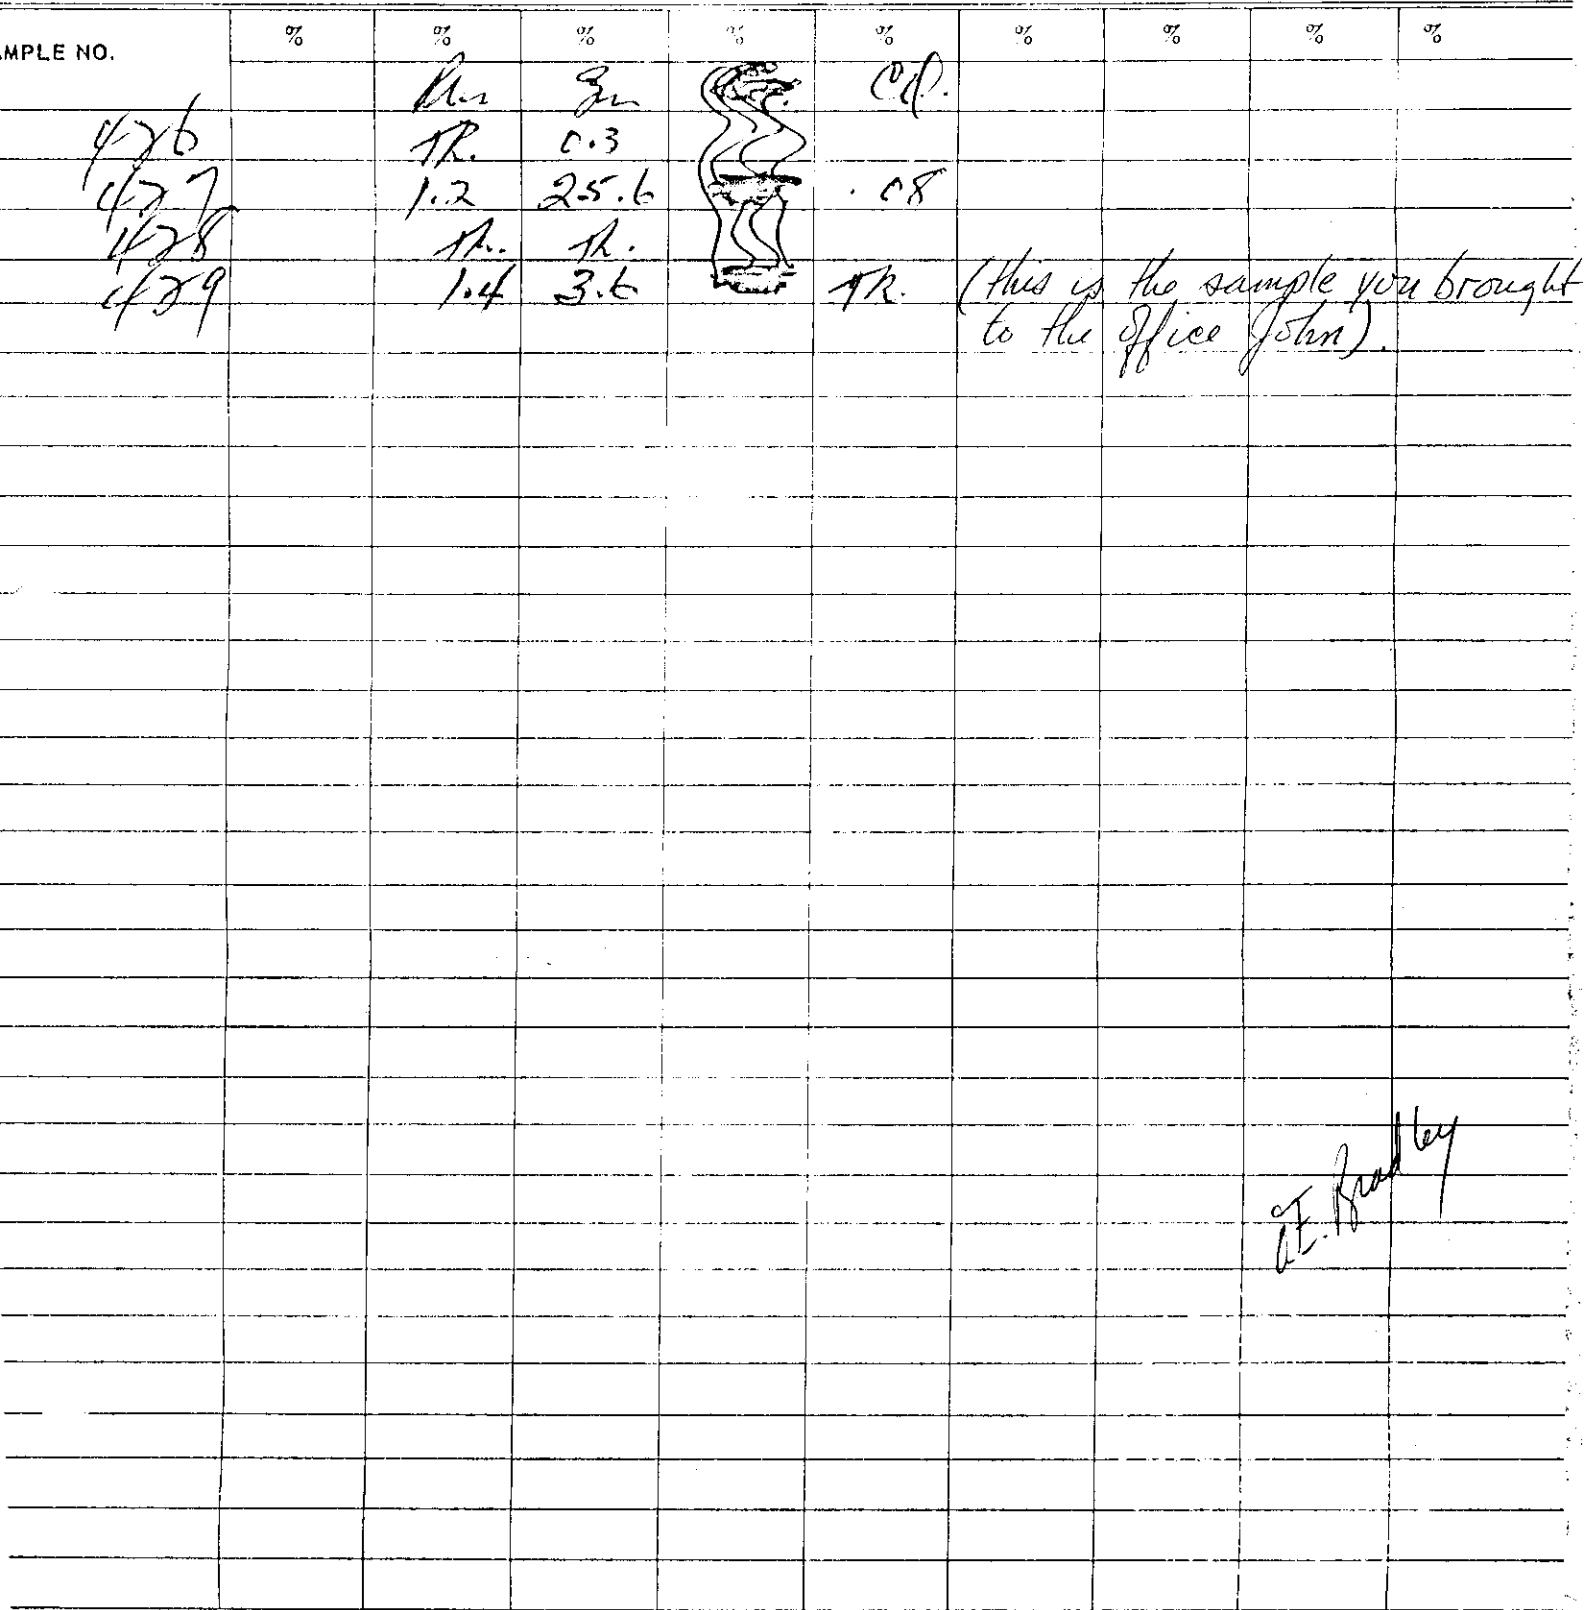 AMPLE NO. % % % % % % % % %
Zn Cd.
426 TR. 0.3
427 1.2 25.6 .08
428 TR. TR.
429 1.4 3.6 TR. (this is the sample you brought
to the office John).
Bradley